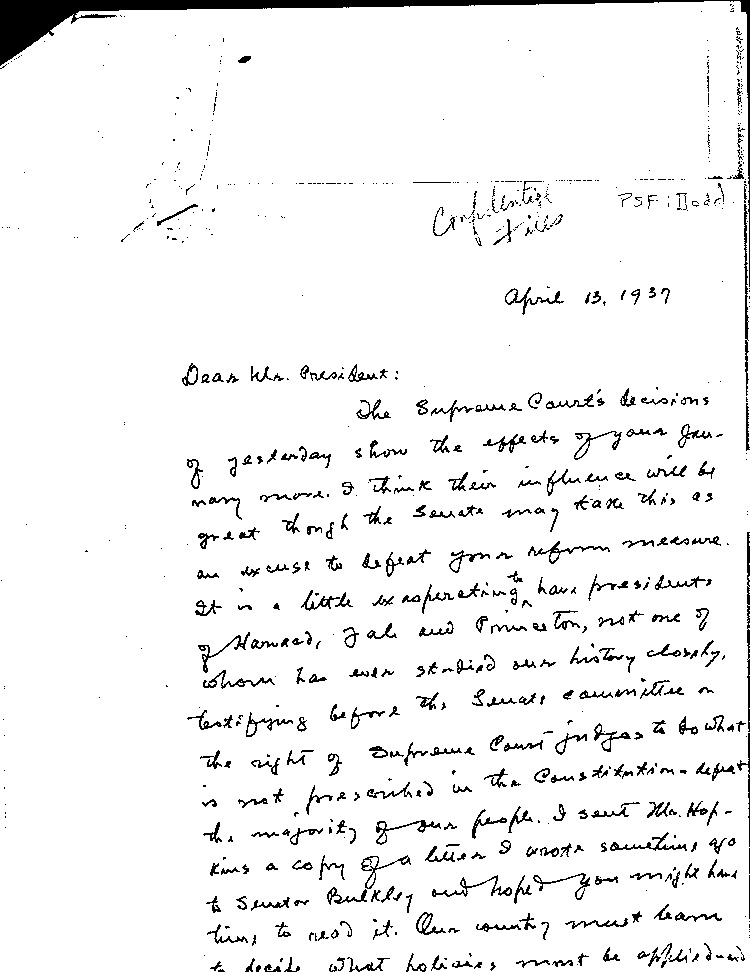 Confidential
Files
PSF: Dodd
April 13, 1937
Dear Mr. President:
The Supreme Court's decisions
of yesterday show the effects of your Jan-
uary move. I think their influence will be
great though the Senate may take this as
an excuse to defeat your reform measure.
It is a little exasperating to have presidents
of Harvard, Yale and Princeton, not one of
whom has ever studied our history closely,
testifying before the Senate committee on
the right of Supreme Court judges to do what
is not prescribed in the Constitution - defeat
the majority of our people. I sent Mr. Hop-
kins a copy of a letter I wrote sometime ago
to Senator Bulkley and hoped you might have
time to read it. Our country must learn
to decide what policies must be applied and